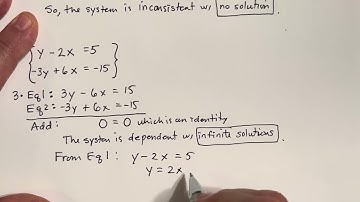 So, the system is inconsistent w/ no solution.
y - 2x = 5
-3y + 6x = -15
3. Eq1: 3y - 6x = 15
Eq2: -3y + 6x = -15
Add: 0 = 0 which is an identity
The system is dependent w/ infinite solutions.
From Eq1: y - 2x = 5
y = 2x